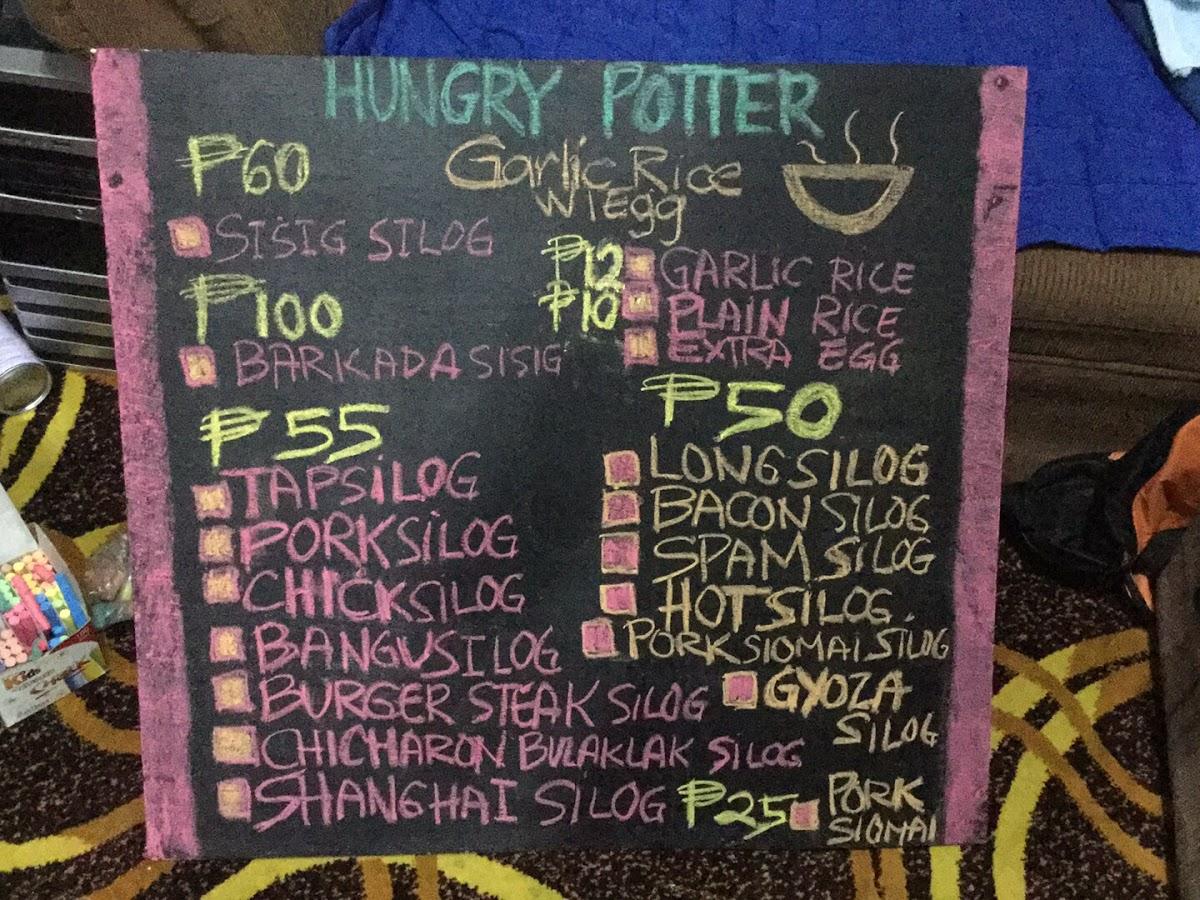 HUNGRY POTTER
₱60
Garlic Rice
W/Egg
SISIG SILOG
₱100
BARKADA SISIG
₱12 GARLIC RICE
₱10 PLAIN RICE
EXTRA EGG
₱55
TAPSILOG
PORKSILOG
CHICKSILOG
BANGUSILOG
BURGER STEAK SILOG
CHICHARON BULAKLAK SILOG
SHANGHAI SILOG
₱50
LONGSILOG
BACON SILOG
SPAM SILOG
HOTSILOG
PORK SIOMAI SILOG
GYOZA
SILOG
₱25 PORK
SIOMAI